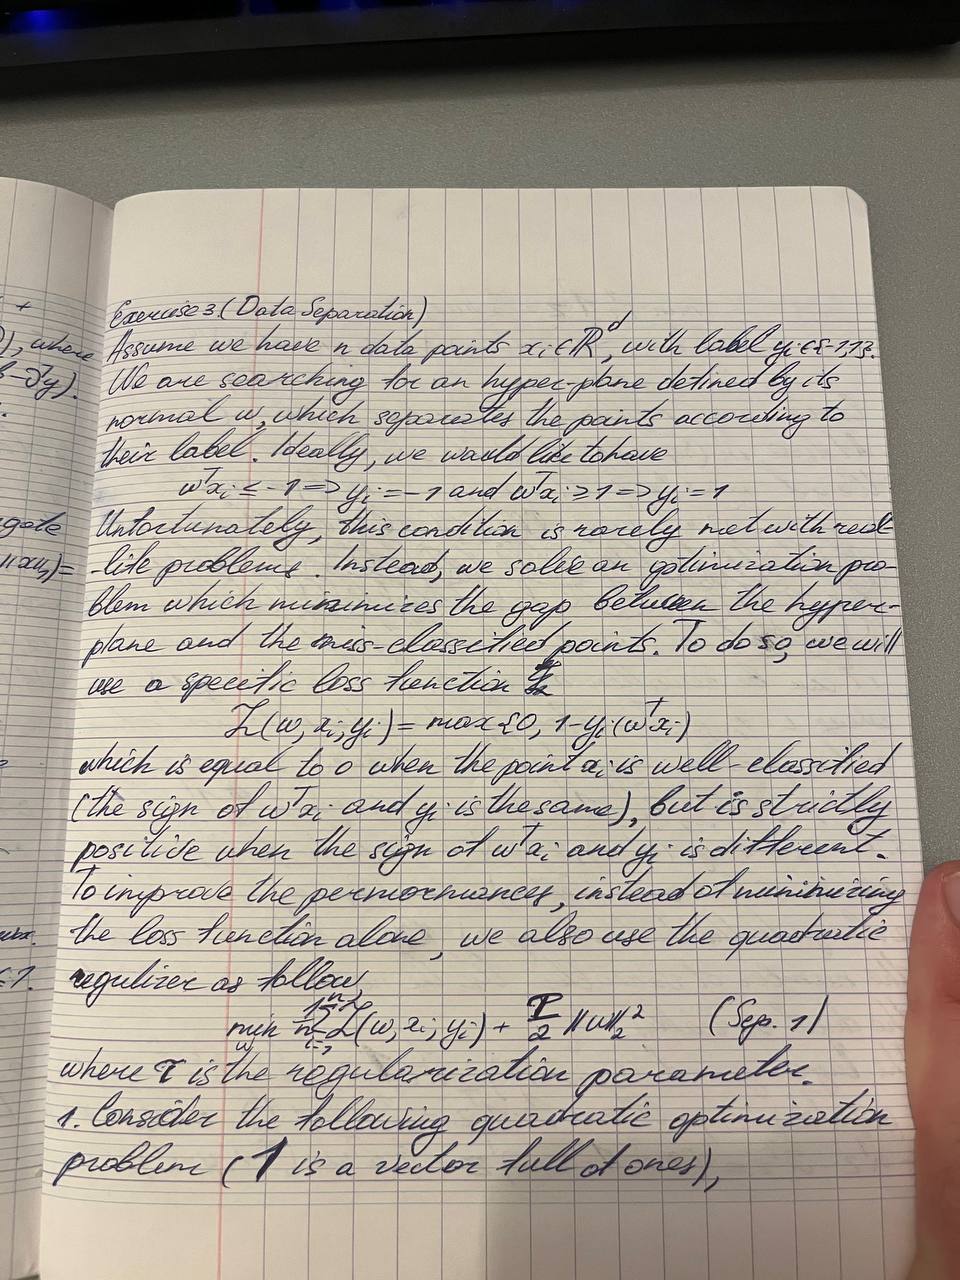 +
), where
b-∂y).
gate
||x||)=
<1.
Exercise 3. (Data Separation)
Assume we have n data points xᵢ∈ℝᵈ, with label yᵢ∈{-1,1}.
We are searching for an hyper-plane defined by its
normal ω, which separates the points according to
their label. Ideally, we would like to have
ωᵀxᵢ ≤ -1 => yᵢ = -1 and ωᵀxᵢ ≥ 1 => yᵢ = 1
Unfortunately, this condition is rarely met with real-
-life problems. Instead, we solve an optimization pro-
blem which minimizes the gap between the hyper-
plane and the miss-classified points. To do so, we will
use a specific loss function
L(ω, xᵢ, yᵢ) = max{0, 1-yᵢ(ωᵀxᵢ)
which is equal to 0 when the point xᵢ is well-classified
(the sign of ωᵀxᵢ and yᵢ is the same), but is strictly
positive when the sign of ωᵀxᵢ and yᵢ is different.
To improve the permormances, instead of minimizing
the loss function alone, we also use the quadratic
regulizer as follow,
min_ω 1/n Σᵢ₌₁ⁿ L(ω, xᵢ; yᵢ) + τ/2 ||ω||₂² (Sep. 1)
where τ is the regularization parameter.
1. Consider the following quadratic optimization
problem (1 is a vector full of ones),